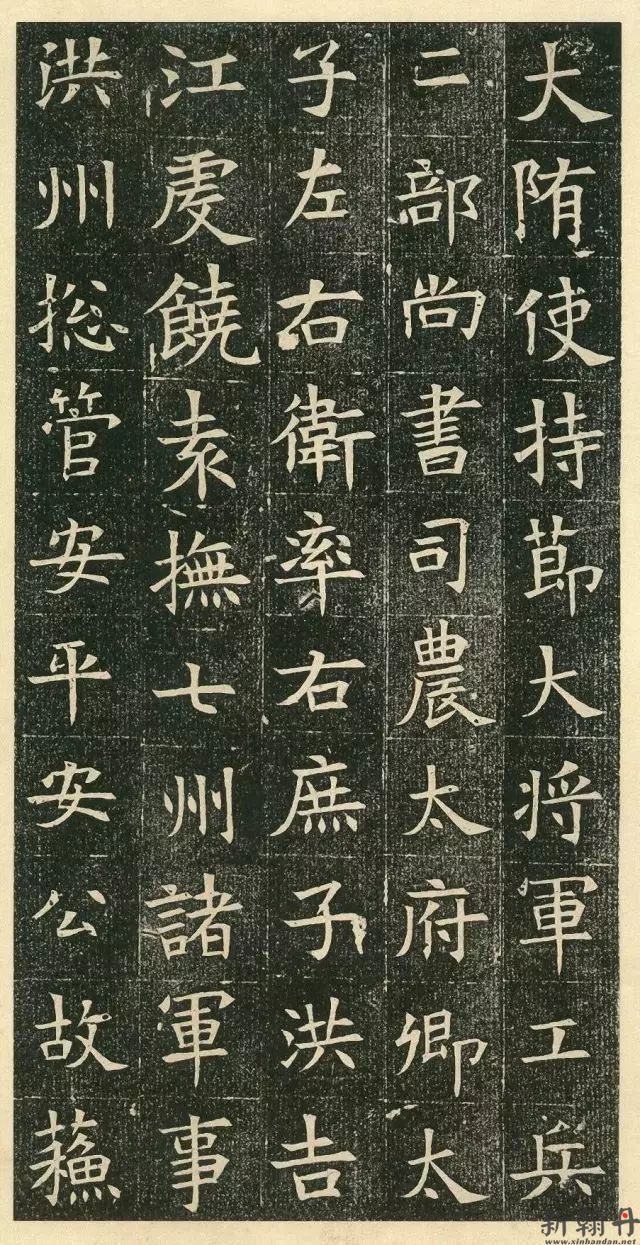 大隋使持節大将軍工兵
二部尚書司農太府卿太
子左右衛率右庶子洪吉
江虔饒袁撫七州諸軍事
洪州捴管安平安公故蘓
新翰丹
www.xinhandan.net